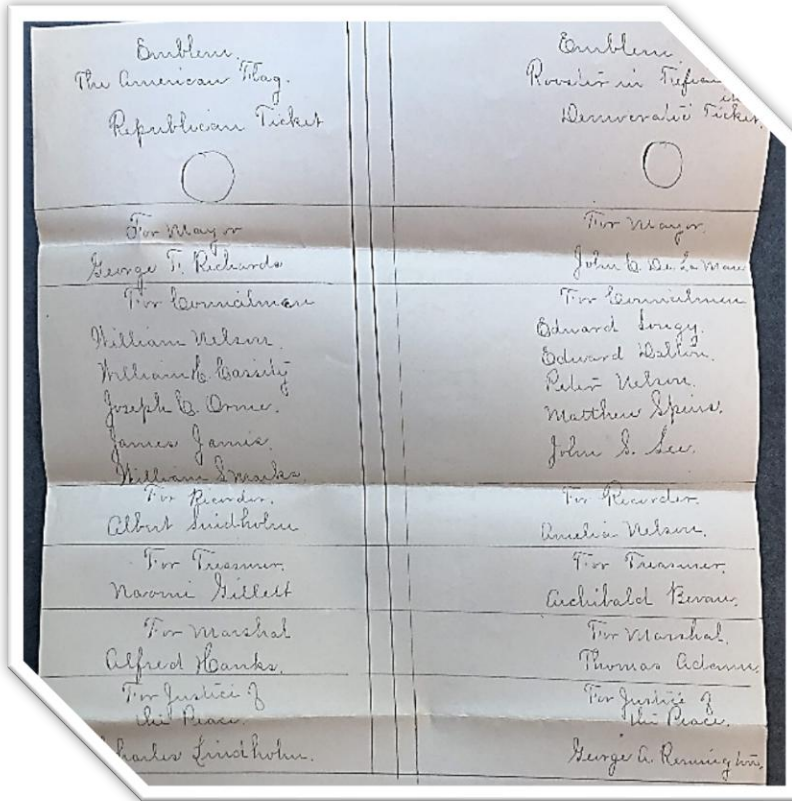 Emblem.
The American Flag.
Republican Ticket
For Mayor
George F. Richards
For Councilmen
William Nelson.
William C. Cassity
Joseph C. Orme.
James Jamis.
William S. Marks
For Recorder.
Albert Lindholm
For Treasurer.
Naomi Gillett
For Marshal
Alfred Hanks.
For Justice of
the Peace.
Charles Lindholm.
Emblem.
Rooster in
in
Democratic Ticket.
For Mayor.
John C. De La Mare
For Councilmen
Edward
Edward Dalton.
Peter Nelson.
Matthew Speirs.
John S. Lee.
For Recorder.
Amelia Nelson.
For Treasurer.
Archibald Bevan.
For Marshal.
Thomas Adams.
For Justice of
the Peace.
George A. Remington.